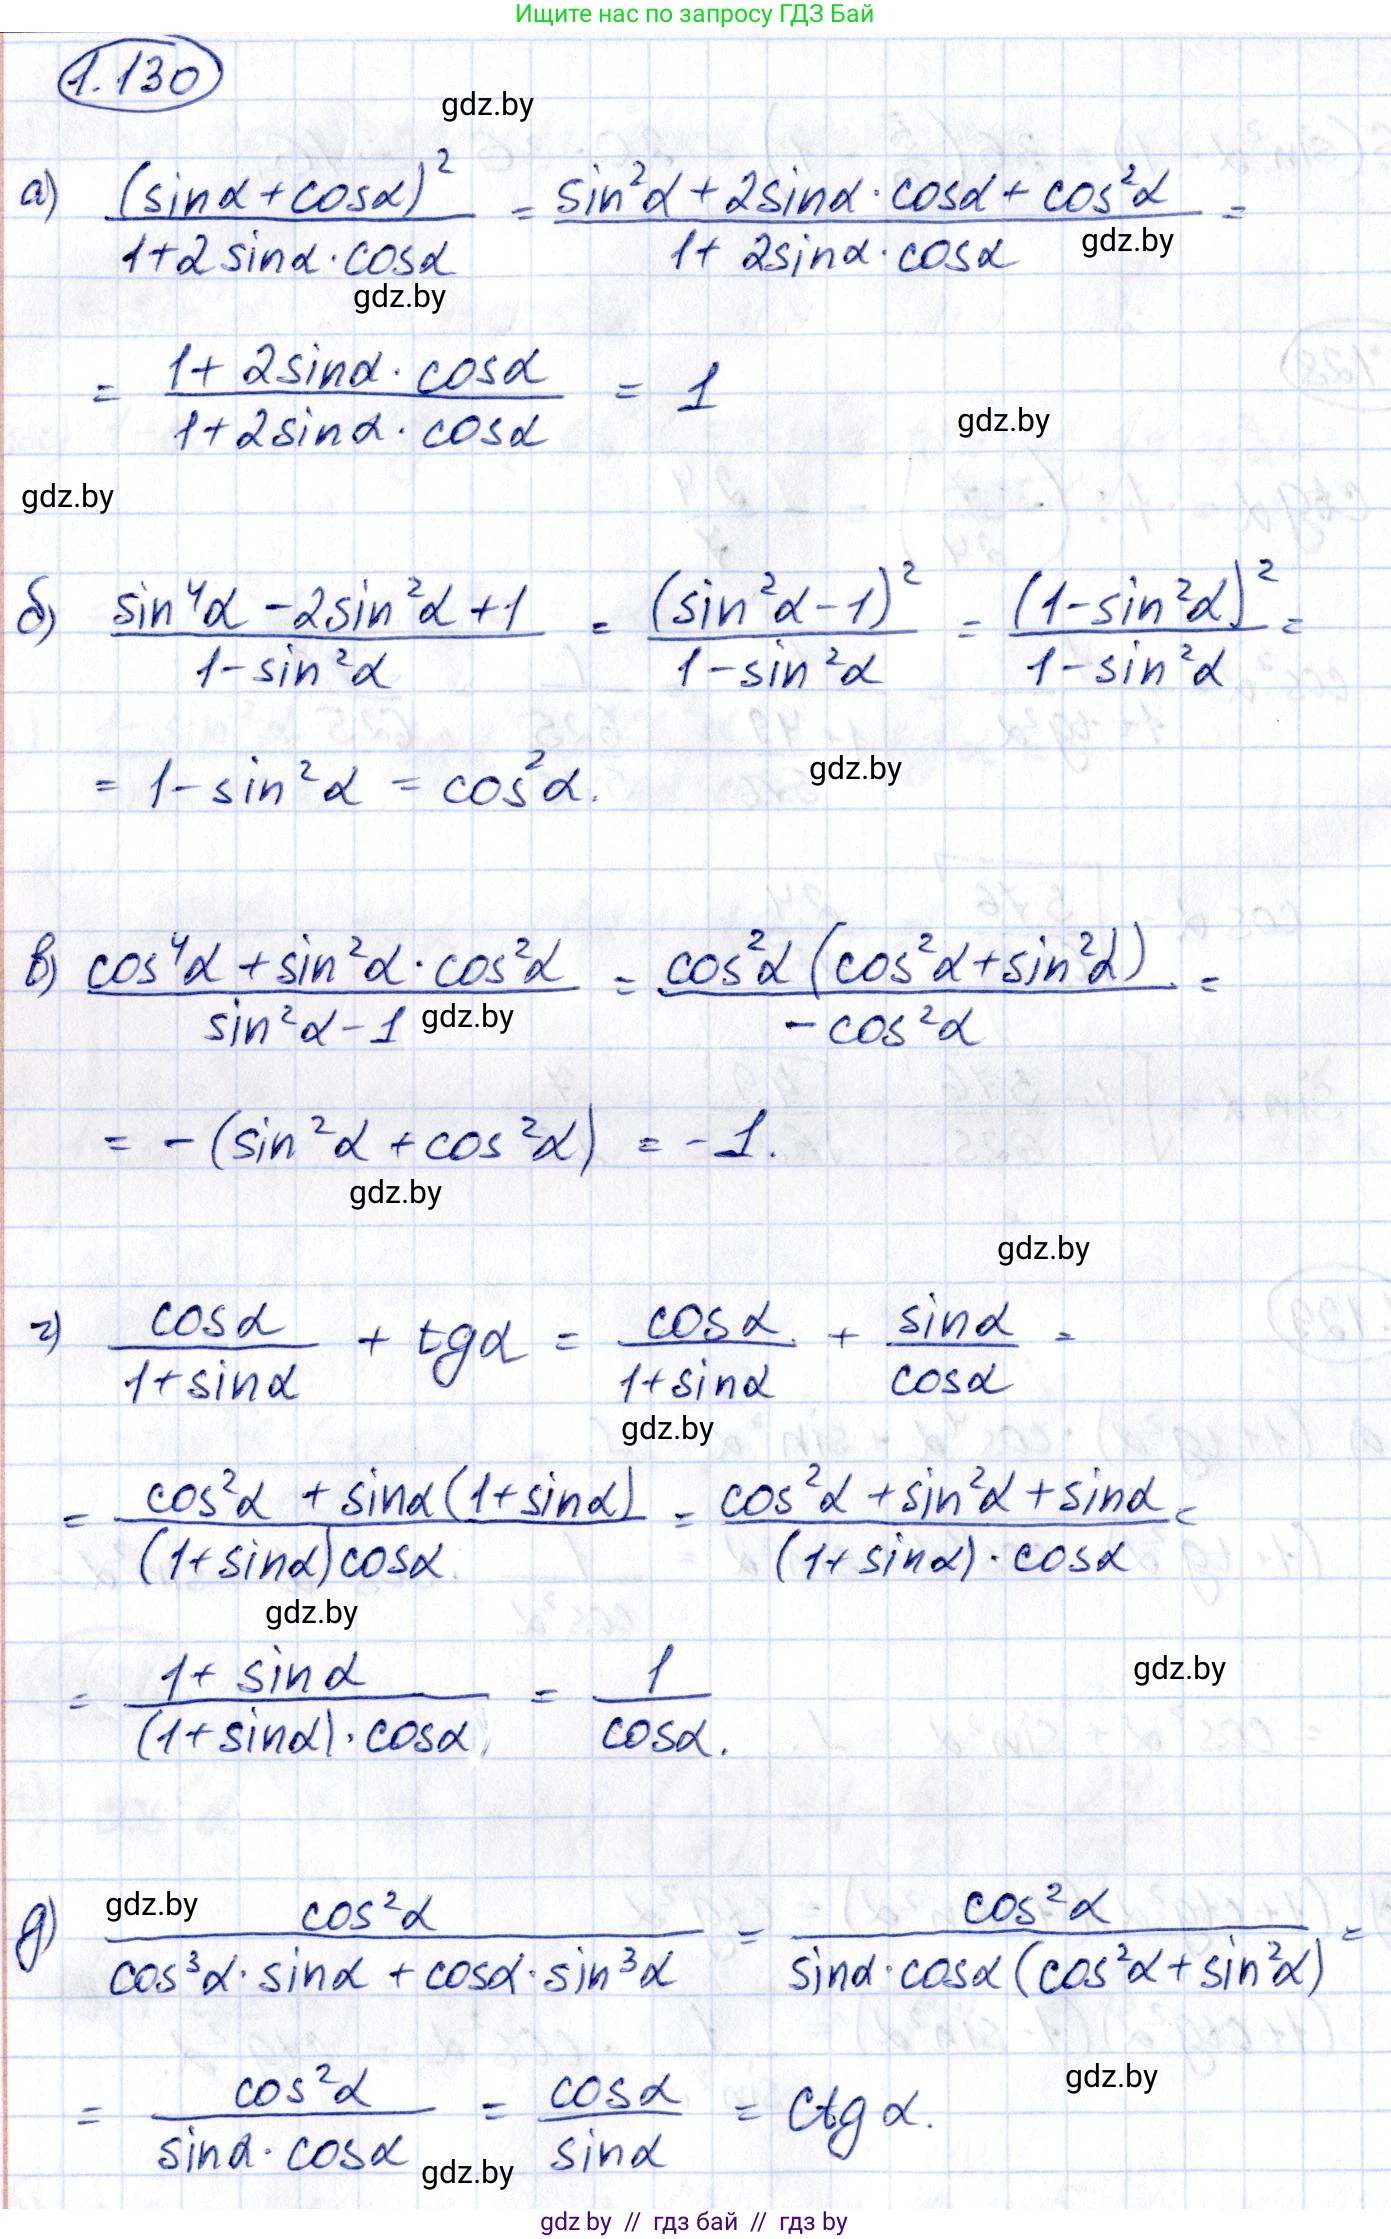 Ищите нас по запросу ГДЗ Бай
1.130
gdz.by
а) (sinα+cosα)² / (1+2sinα·cosα) = (sin²α+2sinα·cosα+cos²α) / (1+2sinα·cosα) =
gdz.by
gdz.by
= (1+2sinα·cosα) / (1+2sinα·cosα) = 1
gdz.by
gdz.by
б) (sin⁴α-2sin²α+1) / (1-sin²α) = (sin²α-1)² / (1-sin²α) = (1-sin²α)² / (1-sin²α) =
= 1-sin²α = cos²α.
gdz.by
в) (cos⁴α+sin²α·cos²α) / (sin²α-1) = cos²α(cos²α+sin²α) / (-cos²α) =
gdz.by
= -(sin²α+cos²α) = -1.
gdz.by
gdz.by
г) cosα / (1+sinα) + tgα = cosα / (1+sinα) + sinα / cosα =
gdz.by
= (cos²α+sinα(1+sinα)) / ((1+sinα)cosα) = (cos²α+sin²α+sinα) / ((1+sinα)·cosα) =
gdz.by
= (1+sinα) / ((1+sinα)·cosα) = 1 / cosα.
gdz.by
gdz.by
д) cos²α / (cos³α·sinα+cosα·sin³α) = cos²α / (sinα·cosα(cos²α+sin²α)) =
gdz.by
= cos²α / (sinα·cosα) = cosα / sinα = ctgα.
gdz.by
gdz by // гдз бай // gdz by